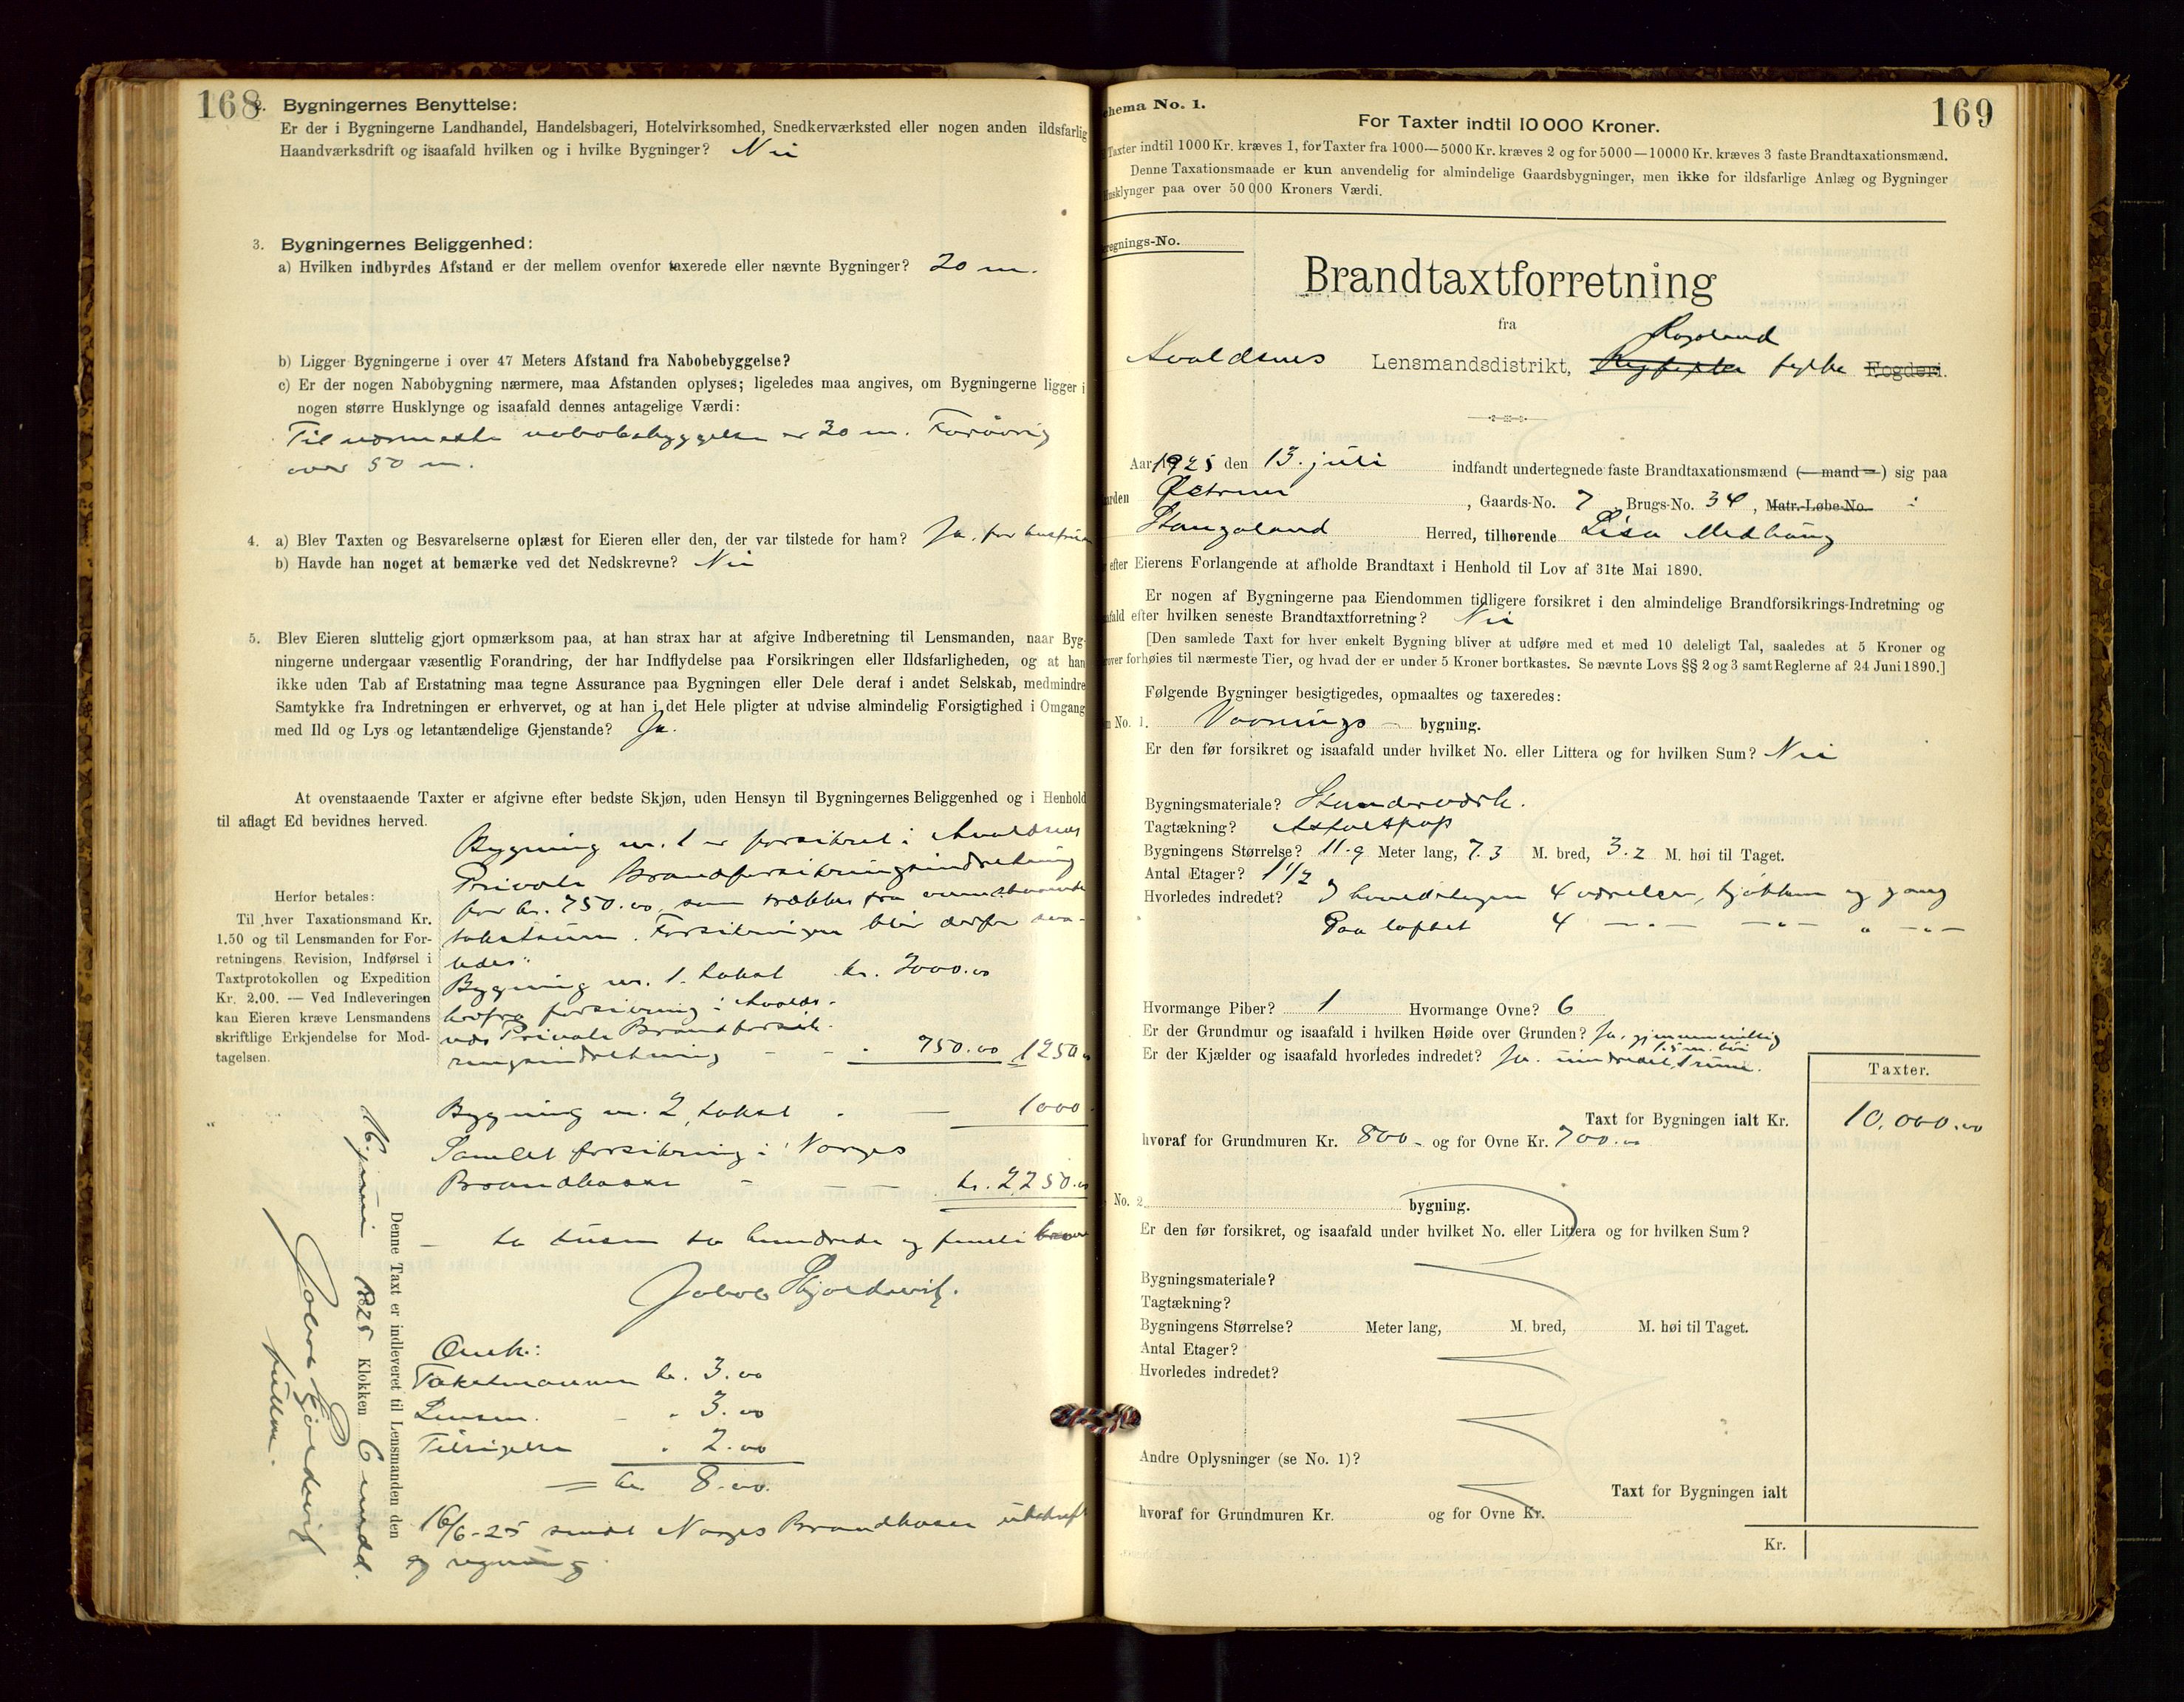 168
2. Bygningernes Benyttelse:
Er der i Bygningerne Landhandel, Handelsbageri, Hotelvirksomhed, Snedkerværksted eller nogen anden ildsfarlig
Haandværksdrift og isaafald hvilken og i hvilke Bygninger? Nei
3. Bygningernes Beliggenhed:
a) Hvilken indbyrdes Afstand er der mellem ovenfor taxerede eller nævnte Bygninger? 20 m.
b) Ligger Bygningerne i over 47 Meters Afstand fra Nabobebyggelse?
c) Er der nogen Nabobygning nærmere, maa Afstanden oplyses; ligeledes maa angives, om Bygningerne ligger i
nogen større Husklynge og isaafald dennes antagelige Værdi:
Til nærmeste nabobebyggelse er 30 m. Forøvrig
over 50 m.
4. a) Blev Taxten og Besvarelserne oplæst for Eieren eller den, der var tilstede for ham? Ja, for hustruen
b) Havde han noget at bemærke ved det Nedskrevne? Nei
5. Blev Eieren sluttelig gjort opmærksom paa, at han strax har at afgive Indberetning til Lensmanden, naar Byg-
ningerne undergaar væsentlig Forandring, der har Indflydelse paa Forsikringen eller Ildsfarligheden, og at han
ikke uden Tab af Erstatning maa tegne Assurance paa Bygningen eller Dele deraf i andet Selskab, medmindre
Samtykke fra Indretningen er erhvervet, og at han i det Hele pligter at udvise almindelig Forsigtighed i Omgang
med Ild og Lys og letantændelige Gjenstande? Ja.
At ovenstaaende Taxter er afgivne efter bedste Skjøn, uden Hensyn til Bygningernes Beliggenhed og i Henhold
til aflagt Ed bevidnes herved.
Bygning nr. 1 er forsikret i Avaldsnes
Private Brandforsikringsindretning
for kr. 750.00, som trækkes fra ovenstaaende
takstsum. Forsikringen blir derfor saa-
ledes:
Bygning nr. 1. takst kr. 2000.00
herfra forsikring i Avalds-
nes Private Brandforsik-
ringsindretning - - . 750.00 1250.00
Bygning nr. 2, takst . — 1000
Samlet forsikring i Norges
Brandkasse - — — kr. 2250.00
— to tusen to hundrede og femti kroner
Jakob Skjoldevig.
Herfor betales:
Til hver Taxationsmand Kr.
1.50 og til Lensmanden for For-
retningens Revision, Indførsel i
Taxtprotokollen og Expedition
Kr. 2.00. — Ved Indleveringen
kan Eieren kræve Lensmandens
skriftlige Erkjendelse for Mod-
tagelsen.
Denne Taxt er indleveret til Lensmanden den
16. juni 1925 Klokken 6 emdd.
Jakob Skjoldevig
fullm.
Omk.:
Takstmannen kr. 3.00
Lensm. - . 3.00
Tilsigelse . 2.00
= kr. 8.00.
16/6-25 sendt Norges Brandkasse utskrift
og regning.
169
Schema No. 1.
For Taxter indtil 10 000 Kroner.
Taxter indtil 1000 Kr. kræves 1, for Taxter fra 1000—5000 Kr. kræves 2 og for 5000—10000 Kr. kræves 3 faste Brandtaxationsmænd.
Denne Taxationsmaade er kun anvendelig for almindelige Gaardsbygninger, men ikke for ildsfarlige Anlæg og Bygninger
Husklynger paa over 50 000 Kroners Værdi.
Beregnings-No.
Brandtaxtforretning
fra
Rogaland
Avaldsnes Lensmandsdistrikt, Ryfylke fylke Fogderi.
Aar 1925 den 13. juli indfandt undertegnede faste Brandtaxationsmænd (— mand —) sig paa
Gaarden Østrem, Gaards-No. 7, Brugs-No. 34, Matr.-Løbe-No. i
Stangaland Herred, tilhørende Lisa Medhaug
efter Eierens Forlangende at afholde Brandtaxt i Henhold til Lov af 31te Mai 1890.
Er nogen af Bygningerne paa Eiendommen tidligere forsikret i den almindelige Brandforsikrings-Indretning og
isaafald efter hvilken seneste Brandtaxtforretning? Nei
[Den samlede Taxt for hver enkelt Bygning bliver at udføre med et med 10 deleligt Tal, saaledes at 5 Kroner og
derover forhøies til nærmeste Tier, og hvad der er under 5 Kroner bortkastes. Se nævnte Lovs §§ 2 og 3 samt Reglerne af 24 Juni 1890.]
Følgende Bygninger besigtigedes, opmaaltes og taxeredes:
No. 1. Vaanings- bygning.
Er den før forsikret og isaafald under hvilket No. eller Littera og for hvilken Sum? Nei
Bygningsmateriale? Stenderverk.
Tagtækning? Asfaltpap
Bygningens Størrelse? 11.9 Meter lang, 7.3 M. bred, 3.2 M. høi til Taget.
Antal Etager? 1 1/2
Hvorledes indredet? I hovedetagen 4 værelser, kjøkken og gang
Paa loftet 4 — „ — — „ — „ — „ —
Hvormange Piber? 1 Hvormange Ovne? 6
Er der Grundmur og isaafald i hvilken Høide over Grunden? Ja, gjennemsnitlig
1.5 m. høi
Er der Kjælder og isaafald hvorledes indredet? Ja. uindredet, 1 rum.
Taxter.
Taxt for Bygningen ialt Kr. 10.000.00
hvoraf for Grundmuren Kr. 800.- og for Ovne Kr. 700.00
No. 2 bygning.
Er den før forsikret, og isaafald under hvilket No. eller Littera og for hvilken Sum?
Bygningsmateriale?
Tagtækning?
Bygningens Størrelse? Meter lang, M. bred, M. høi til Taget.
Antal Etager?
Hvorledes indredet?
Andre Oplysninger (se No. 1)?
Taxt for Bygningen ialt
hvoraf for Grundmuren Kr. og for Ovne Kr.
Kr.